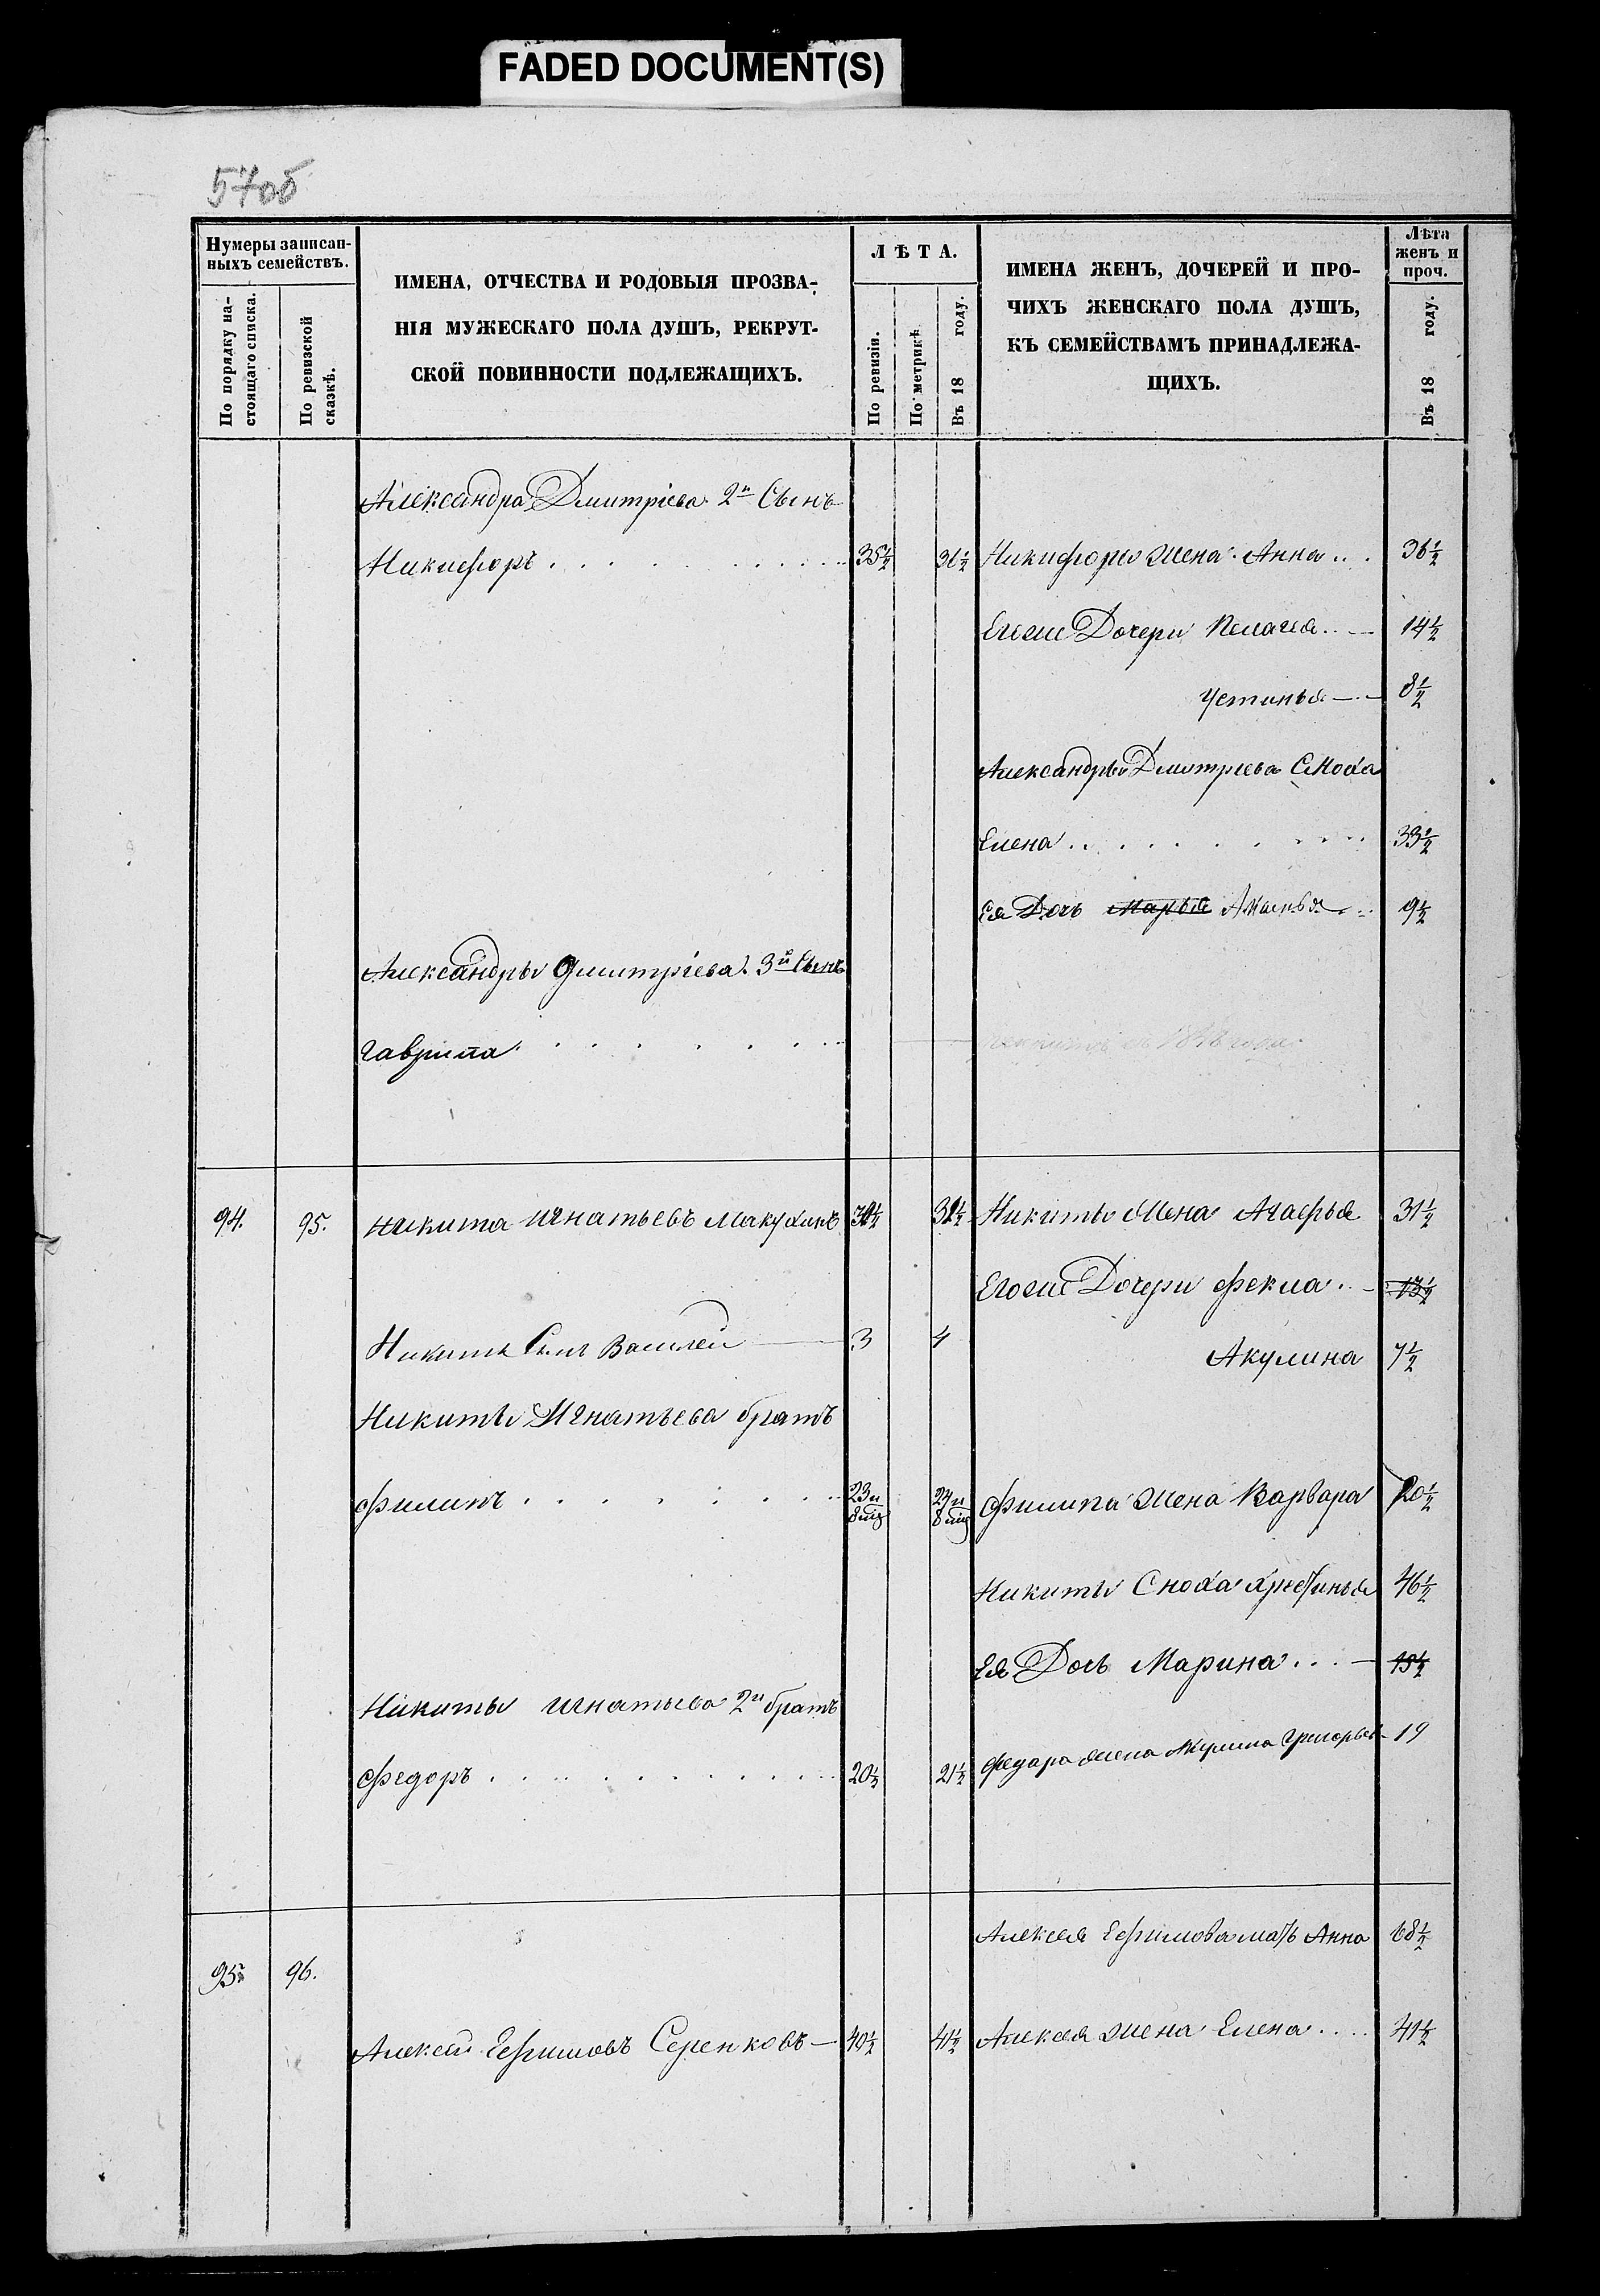 FADED DOCUMENT(S)
57об
Нумеры записан-
ныхъ семействъ.
По порядку на-
стоящаго списка.
По ревизской
сказкѣ.
ИМЕНА, ОТЧЕСТВА И РОДОВЫЯ ПРОЗВА-
НІЯ МУЖЕСКАГО ПОЛА ДУШЪ, РЕКРУТ-
СКОЙ ПОВИННОСТИ ПОДЛЕЖАЩИХЪ.
ЛѢТА.
По ревизіи.
По метрикѣ
Въ 18 году.
ИМЕНА ЖЕНЪ, ДОЧЕРЕЙ И ПРО-
ЧИХЪ ЖЕНСКАГО ПОЛА ДУШЪ,
КЪ СЕМЕЙСТВАМЪ ПРИНАДЛЕЖА-
ЩИХЪ.
Лѣта
женъ и
проч.
Въ 18 году.
Александра Дмитріева 2й Сынъ
Никифоръ 35½ Никифоры жена Анна 36½
Дочери Пелагея 14½
Устинья 8½
Александры Дмитриева Сноха
Елена 33½
Ея Дочь Марья 9½
Александры Дмитріева 3й Сынъ
Гаврила
1858 года
94. 95. Никита Игнатьевъ Макухинъ Никиты Жена Агафья 31½
Егоже Дочери Фекла 13½
Никиты Сынъ Василей 3 4 Акулина 7½
Никиты Игнатьева братъ
Филипъ 23 и 8 мц 24 и 8 мц Филипа жена Варвара 20½
Никиты Сноха Христинья 46½
Ея Дочь Марина
Никиты Игнатьева 2й братъ
Федоръ 20½ 21½ Федара жена Акулина Григорьев 19
Алексея Ефимова мать Анна 68½
95 96.
Алексей Ефимовъ Серенковъ 40½ 41½ Алексея жена Елена 41½